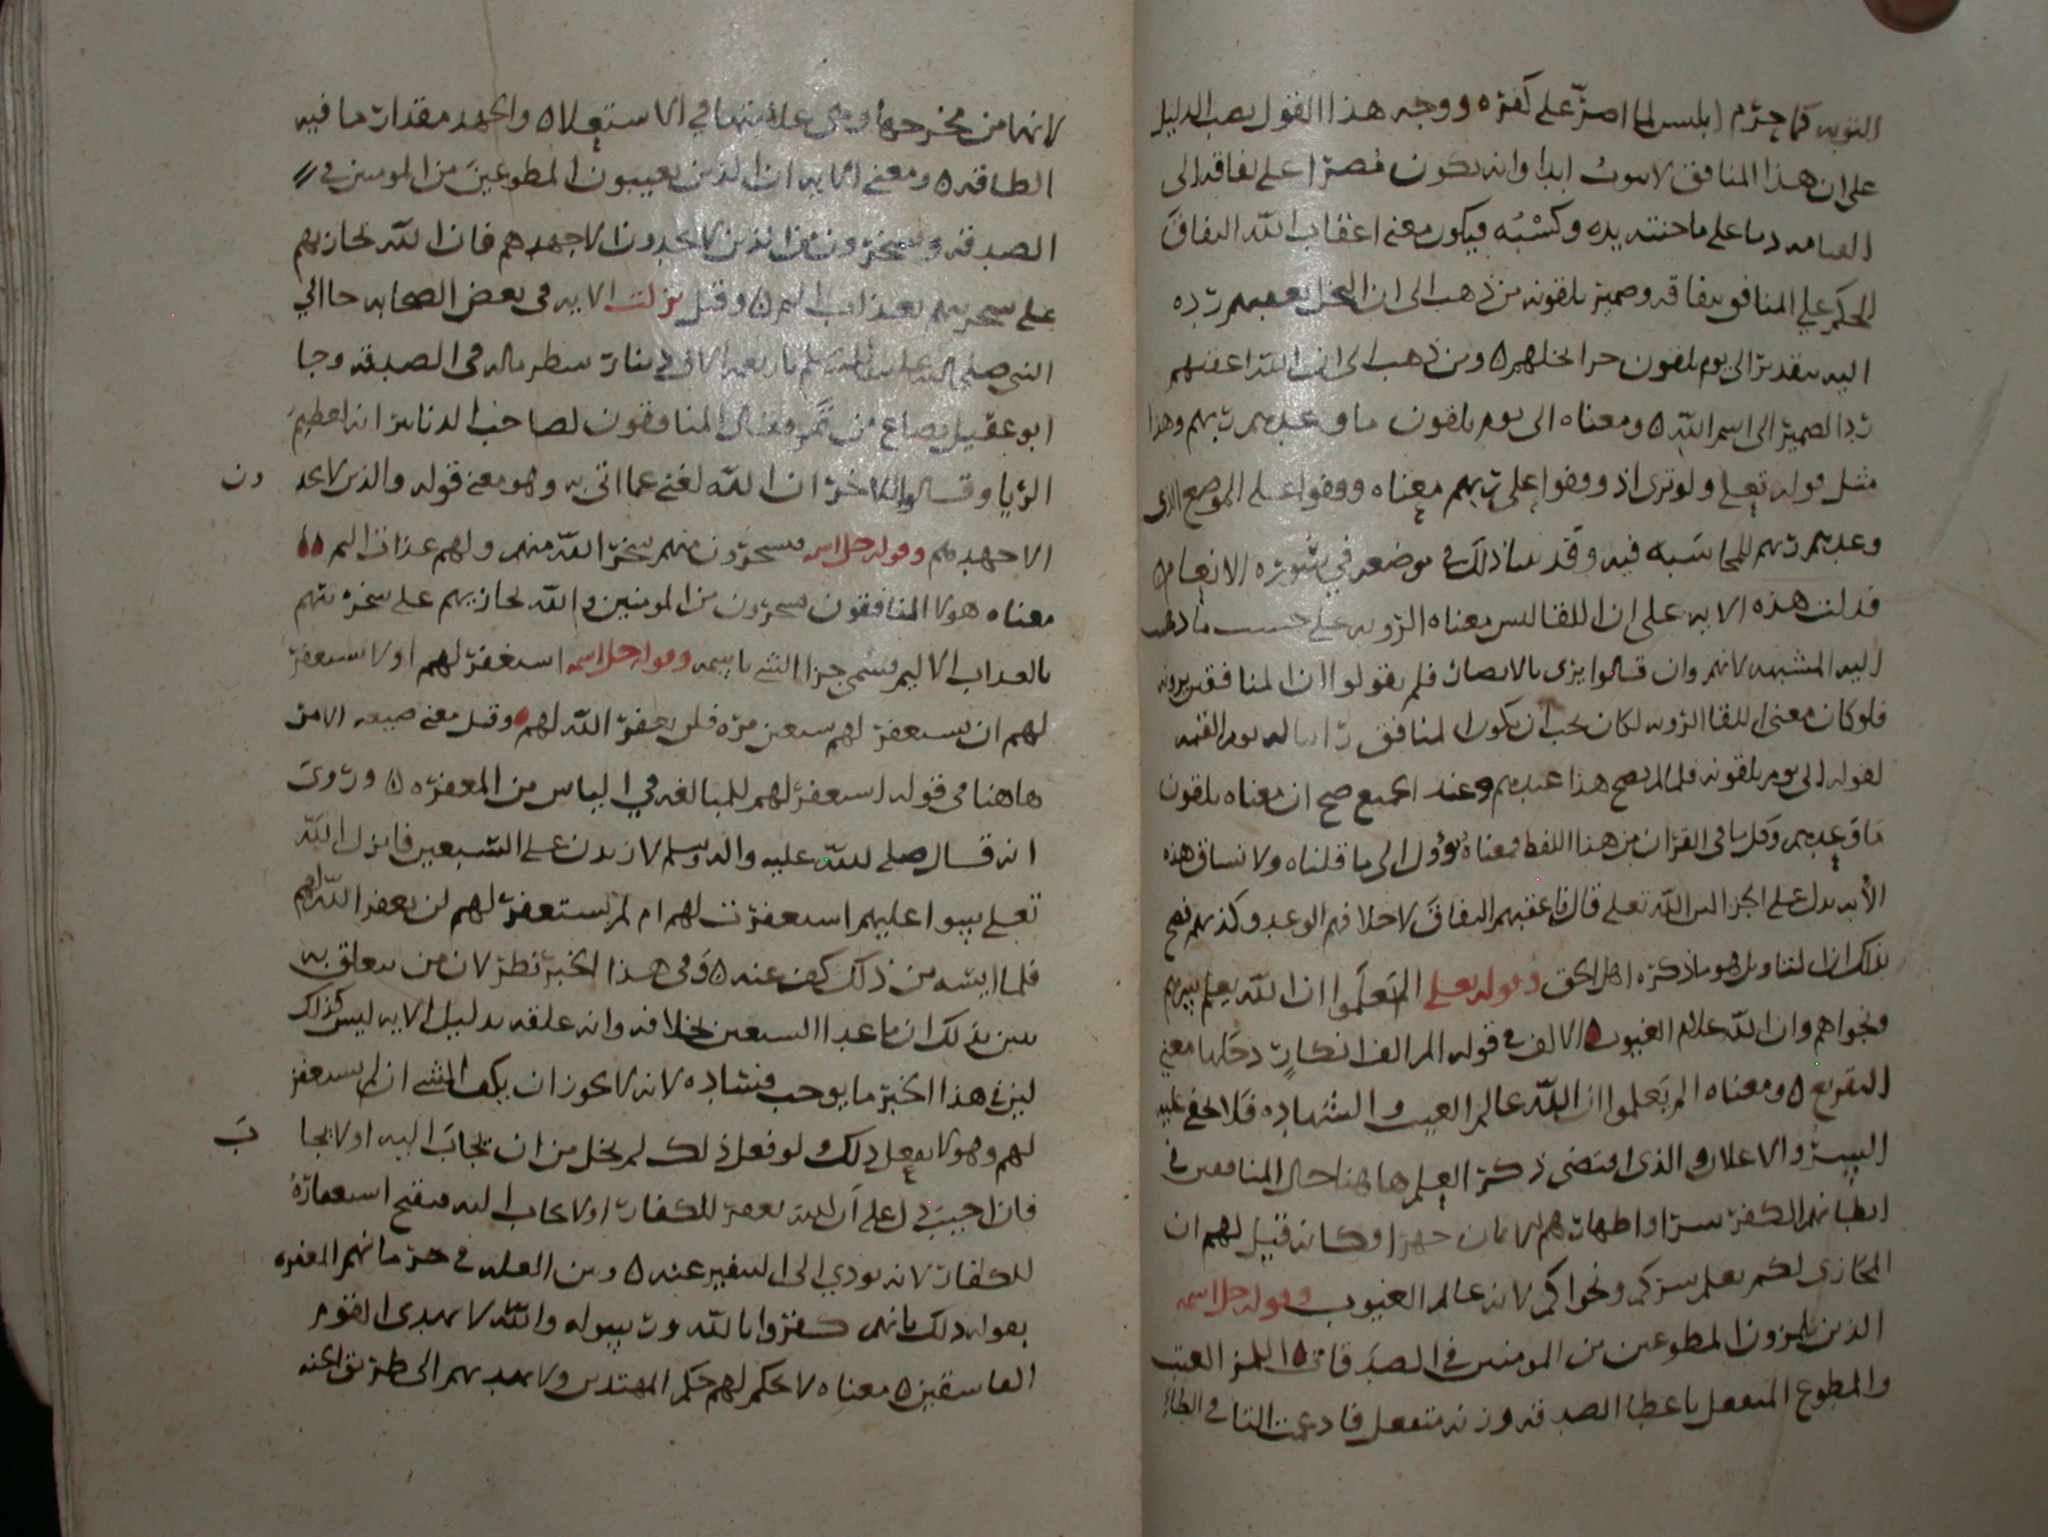 التوبه كما حرم ابليس لما اصرّ على كفره ووجه هذا القول نصب الدليل
على ان هذا المنافق لا يتوب ابدا وانه يكون مُصرّا على نفاقه الى
القيامه دما على ما جنته يده وكسْبُه فيكون معنى اعقاب اللّه النفاق
الحكم على المنافق بنفاقه وضمير يلقونه من ذهب الى ان البخل يعقبهم ردّه
اليه بتقدير الى يوم يلقون جزا بخلهم ه ومن ذهب الى ان اللّه اعقبهم
ردّ الضمير الى اسم اللّه ه ومعناه الى يوم يلقون ما وعدهم ربهم وهذا
مثل قوله تعلى ولو ترى اذ وقفوا على ربهم معناه ووقفوا على الموضع الذى
وعدهم ربهم للمحاسَبه فيه وقد بينا ذلك في موضعه في سُوره الانعام ه
فدلت هذه الايه على ان اللقا ليس معناه الرويه على حسب ما ذهب
اليه المشبهه لانهم وان قالوا يرى بالابصار فلم يقولوا ان المنافقين يرونه
فلو كان معنى اللقا الرويه لكان يجب ان يكون المنافق رائيا له يوم القيمه
لقوله الى يوم يلقونه فلما لم يصح هذا عندهم وعند الجميع صح ان معناه يلقون
مَا وَعدهم وكل ما فى القران من هذا اللفظ فمعناهُ يؤول الى ما قلناه ولا تساق هذه
الأيه يدل على اللّه تعلى قال فاعقبهم النفاقَ لاخلافهم الوعد وكذبهم فصح
بذلك ان التاويل هو ما ذكره اهل الحق وقوله تعلى الم يَعلمَوا ان اللّه يعلم سرهم
ونجواهم وان اللّه علام الغيوب ه الالف في قوله الم الف انكارٍ دخلها معنى
التقريع ه ومعناه الم يَعلموا ان اللّه عالم الغيب والشهاده فلا يخفى عليه
السِرّ والاعلان والذى اقتضى ذكرَ العلم هاهنا حال المنافقين في
ابطانهم الكفر سرا واظهارهم الايمان جهرا وكانه قيل لهم ان
المجَازى لكم يعلم سركم ونجواكم لانه عالم الغيوب وقوله جل اسمه
الذين يلمزون المطوعين من المومنين في الصدَقات ه اللمز العيب
والمطوع المتنفل باعطا الصدقه وزنه متفعل فادغمت التا في الطا
لانها من مخرجها وهى علامتها في الاستعلا ه والجهد مقدار ما فيه
الطاقه ه ومعنى الايه ان الذين يعيبون المطوعينَ من المومنين في
الصدقه ويسخرون من الذين لا يجدون الا جهدهم فان اللّه يجازيهم
على سخريتهم بعذاب اليم ه وقيل نزلت الايه في بعض الصحابه جا الى
النبى صلى اللّه عليه وسلم باربعه الاف دينار شطر ماله في الصدقه وجا
ابو عقيل بصاع من تَمر وقال المنافقون لصاحب الدنانير انه لعظيمَ
الريا وقالوا للاخر ان اللّه لغنى عما اتى به وهو معنى قوله والذين لا يجد
ون
الا جهدهم وقوله جل اسمه فيسخرون منهم سخر اللّه منهم ولهم عذاب اليم
معناه هولا المنافقون يسخرون من المومنين واللّه يجازيهم على سخريتهم
بالعذاب الاليم فسُمى جزا الشى باسمه وقوله جل اسمه استغفر لهم اولا تستغفر
لهم ان تستغفر لهم سبعين مره فلن يغفر اللّه لهم ه وقيل معنى صيغه الامر
هاهنا فى قوله استغفر لهم للمبالغه في الياس من المغفره ه وروى
انه قال صلى اللّه عليه واله وسلم لازيدن على السّبعين فانزل اللّه
تعلى سوا عليهم استغفرت لهم ام لم تستغفر لهم لن يغفر اللّه لهم
فلما ايسه من ذلك كف عنه ه وَفى هذا الخبر نظر لان من يتعلق به
يبين بذلك ان ما عدا السبعين بخلافه وانه علقه بدليل الايه ليس كذلك
لين في هذا الخبر ما يوجب فسَاده لانه لا يجوز ان يكف الشى ان لم يستغفر
لهم وهو لا يفعل ذلك ولو فعل ذلك لم يخل من ان يجَابَ اليه اولا يجا
بَ
فان اجيبَ دل على اَن اللّه يغفر للكفار اولا يجاب اليه فيقبح استغفارهُ
للكفار لانه يودي الى التنفير عنه ه وبين العله في حرمانهم المغفره
بقوله ذلك بانهم كفروا باللّه ورسوله واللّه لا يهدى القوم
الفاسقين ه معناه لا يحكم لهم حكم المهتدين ولا يهديهم الى طريق الجنه